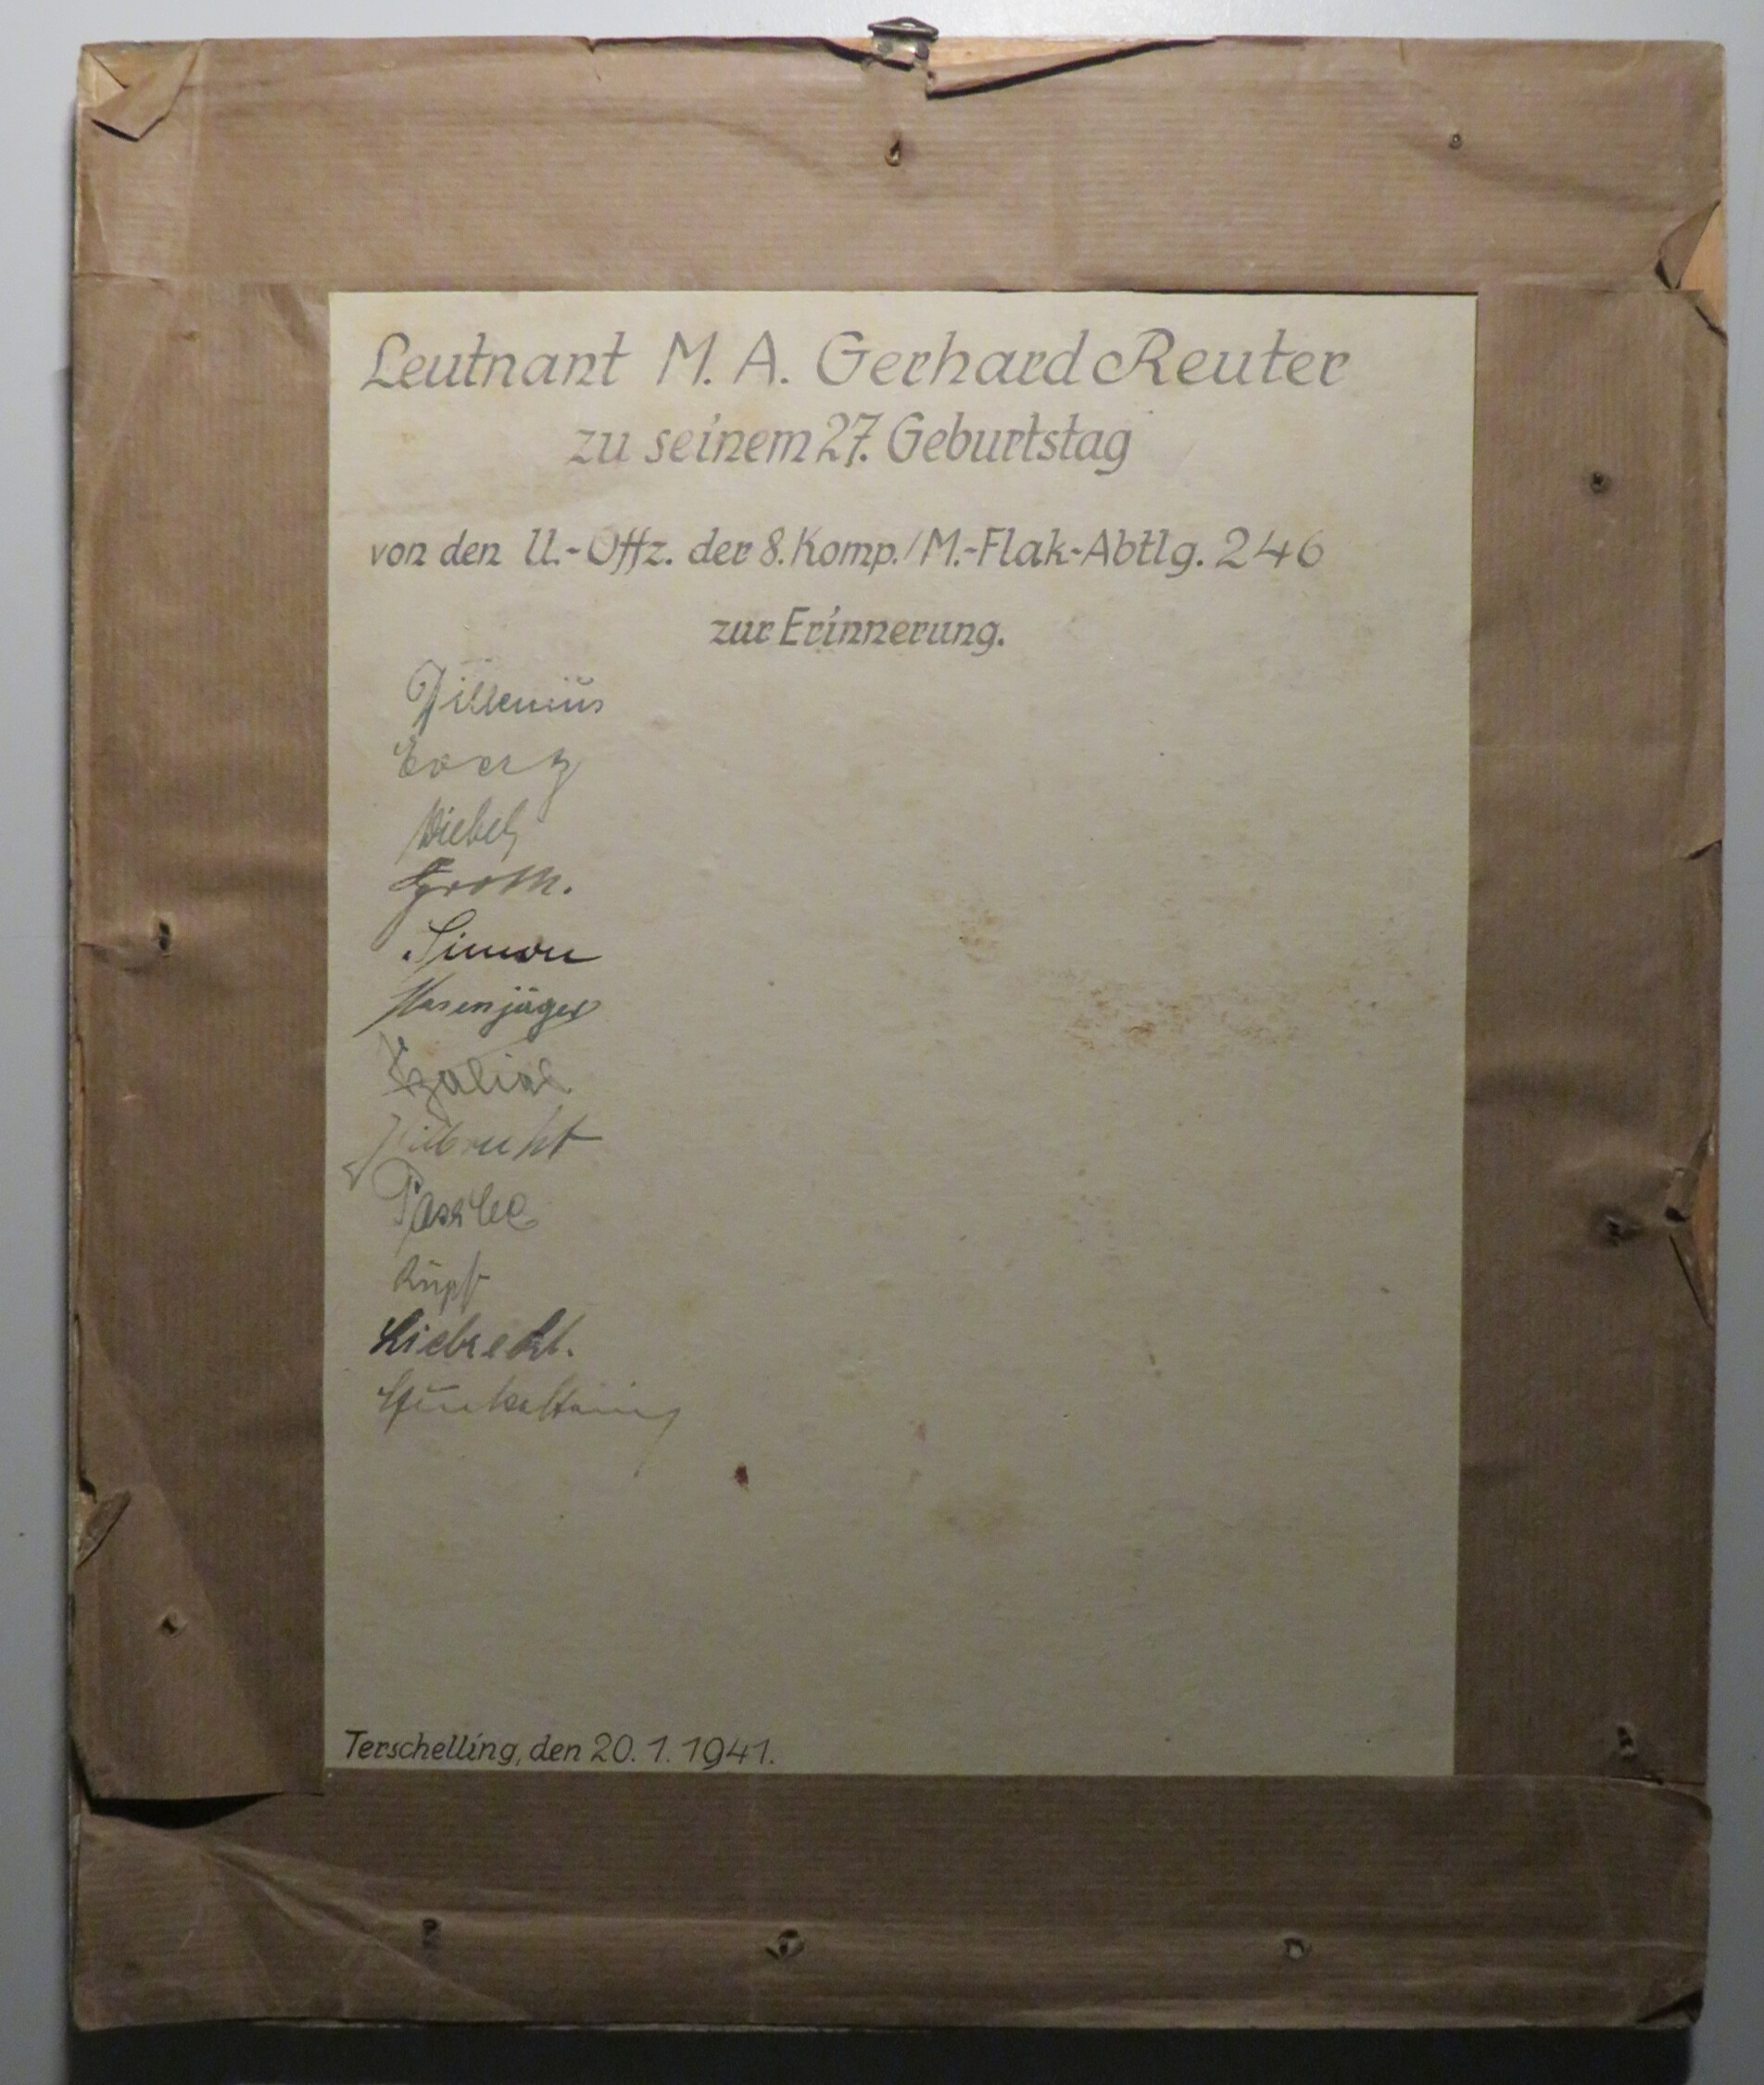 Leutnant M. A. Gerhard Reuter
zu seinem 27. Geburtstag
von den U.-Offz. der 8. Komp./M.-Flak-Abtlg. 246
zur Erinnerung.
Dillenius
Everz
Groth.
Simon
Hasenjäger
Liebrecht.
Terschelling, den 20. 1. 1941.